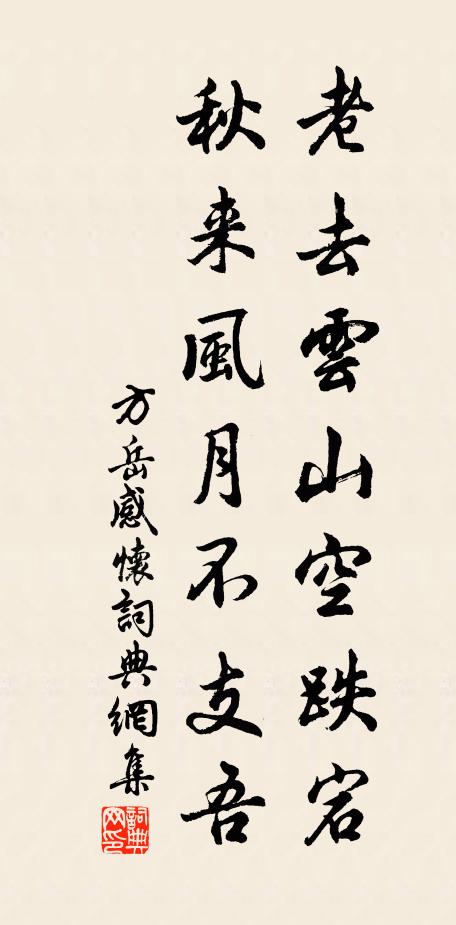 老去雲山空跌宕
秋来風月不支吾
方岳感懷詞典網集
詞典网印